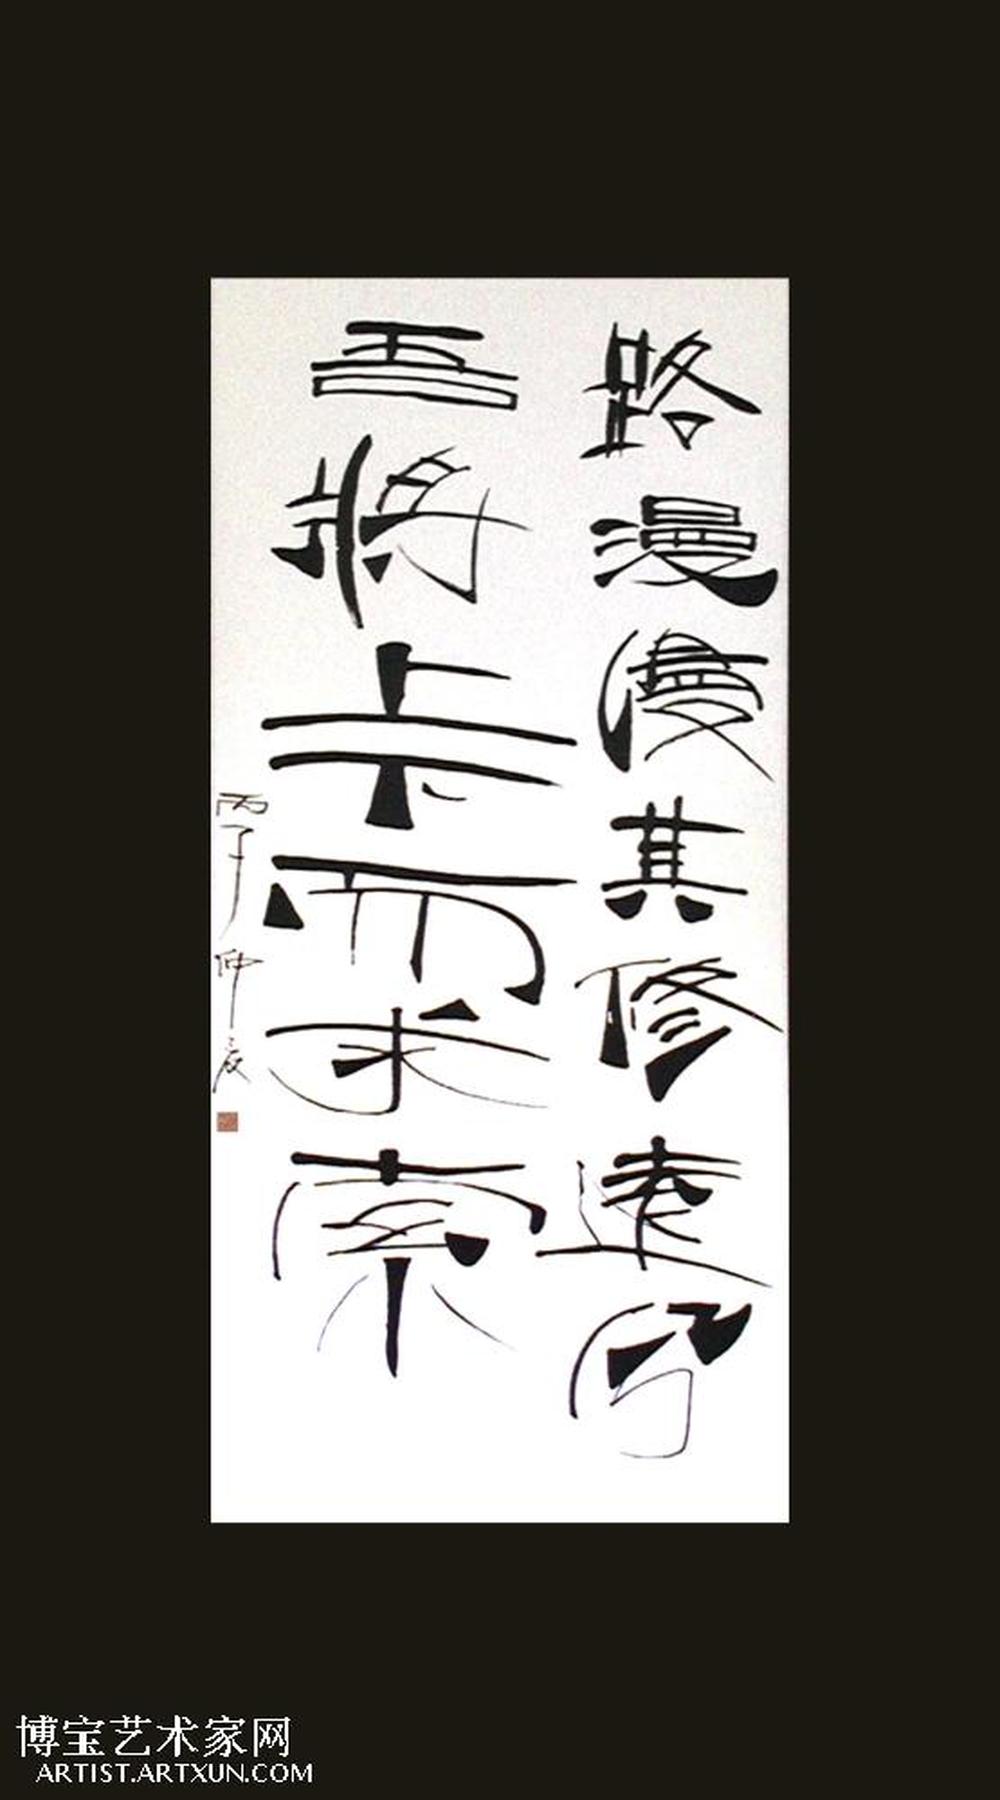 路漫漫其修遠兮
吾將上下而求索
丙子仲
博宝艺术家网
ARTIST.ARTXUN.COM